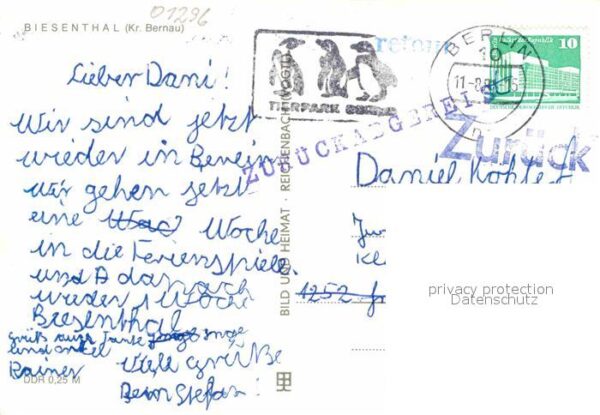 01296
BIESENTHAL (Kr. Bernau)
Lieber Dani!
Wir sind jetzt
wieder in
Wir gehen jetzt
eine Woche
in die Ferienspiele
und danach
wieder 1 Woche
Biesenthal
Grüß auch Tante
und onkel
Rainer
Viele Grüße
Dein Stefan!
DDR 0,25 M
BILD UND HEIMAT · REICHENBACH (VOGTL)
TIERPARK BERLIN
retour
BERLIN
10
10
ZURÜCKAGBREIST
Zurück
Daniel Köhler
1252
privacy protection
Datenschutz